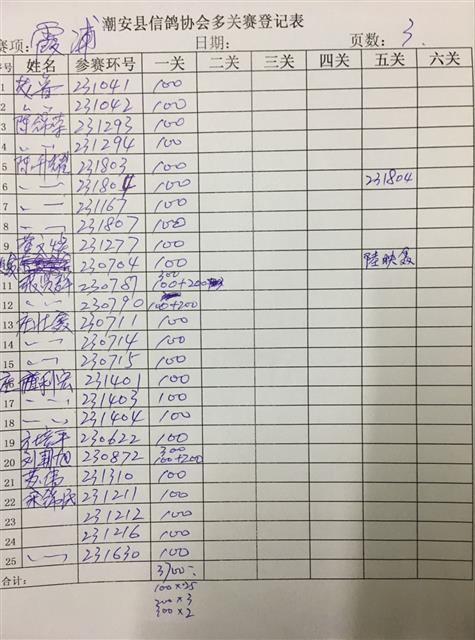 潮安县信鸽协会多关赛登记表
赛项: 霞浦 日期: 页数: 3
序号 姓名 参赛环号 一关 二关 三关 四关 五关 六关
1 231041 100
2 〃 231042 100
3 陈锦荣 231293 100
4 〃 231294 100
5 陈升耀 231803 100
6 〃 231804 100 231804
7 〃 231167 100
8 〃 231807 100
9 231277 100
230704 100 陆映贤
300
11 230787 100+200
12 〃 230790 100+200
13 230711 100
14 〃 230714 100
15 〃 230715 100
16 231401 100
17 〃 231403 100
18 〃 231404 100
19 230622 100
300
20 刘 230872 100+200
21 苏伟 231310 100
22 231211 100
23 231212 100
24 231216 100
25 〃 231630 100
合计: 3700
100×25
200×3
300×2